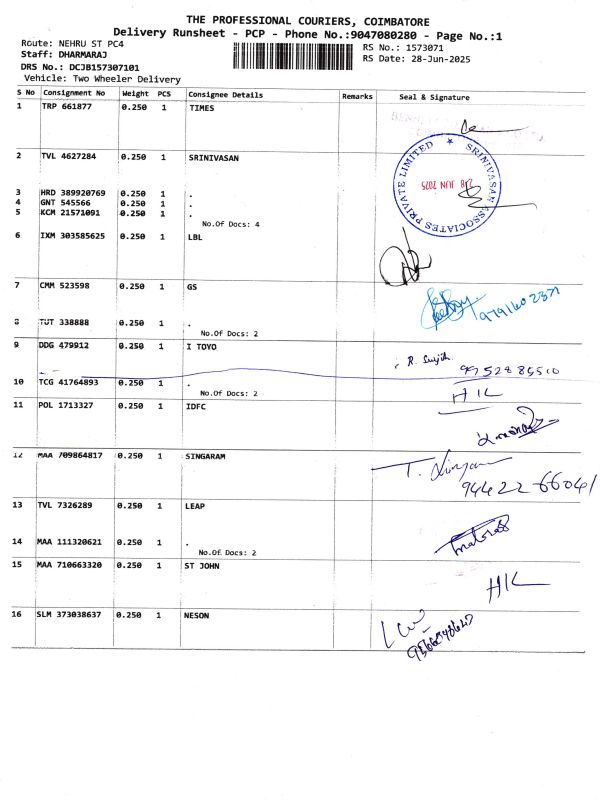 THE PROFESSIONAL COURIERS, COIMBATORE
Delivery Runsheet - PCP - Phone No.:9047080280 - Page No.:1
Route: NEHRU ST PC4
RS No.: 1573071
Staff: DHARMARAJ
RS Date: 28-Jun-2025
DRS No.: DCJB157307101
Vehicle: Two Wheeler Delivery
S No Consignment No Weight PCS Consignee Details Remarks Seal & Signature
1 TRP 661877 0.250 1 TIMES
2 TVL 4627284 0.250 1 SRINIVASAN
SRINIVASAN ASSOCIATES PRIVATE LIMITED
28 JUN 2025
3 HRD 389920769 0.250 1 .
4 GNT 545566 0.250 1 .
5 KCM 21571091 0.250 1 .
No.Of Docs: 4
6 IXM 303585625 0.250 1 LBL
7 CMM 523598 0.250 1 GS
9791602371
8 TUT 338888 0.250 1 .
No.Of Docs: 2
9 DDG 479912 0.250 1 I TOYO
R. Sujith
9952885510
10 TCG 41764893 0.250 1 .
No.Of Docs: 2
HK
11 POL 1713327 0.250 1 IDFC
12 MAA 709864817 0.250 1 SINGARAM
94422 66041
13 TVL 7326289 0.250 1 LEAP
14 MAA 111320621 0.250 1 .
No.Of Docs: 2
15 MAA 710663320 0.250 1 ST JOHN
HK
16 SLM 373038637 0.250 1 NESON